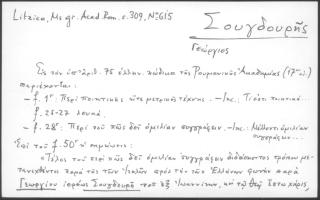 Litzica, Ms gr. Acad. Rom. σ. 309, Nº 615
Σουγδουρῆς
Γεώργιος
Εἰς τὸν ὑπ' ἀρ. 75 ἑλλην. κώδικα τῆς Ρουμανικῆς Ἀκαδημίας (17ου αἰ.)
περιέχονται:
– f. 1r: Περὶ ποιητικῆς ἤτοι μετρικῆς τέχνης. – Inc.: Τί ἐστι ποιητικὰ...
f. 25-27 λευκά.
– f. 28r: Περὶ τοῦ πῶς δεῖ ὁμιλίαν συγγράφειν. – Inc.: Μέλλοντι ὁμιλίαν
συγγράφειν...
Ἐπὶ τοῦ f. 50r ἡ σημείωσις:
«Τέλος τοῦ περὶ πῶς δεῖ ὁμιλίαν συγγράφειν διδάσκοντος τρόπου με-
τενεχθέντος παρὰ τῆς τῶν Ἰταλῶν πρὸς τὴν τῶν Ἑλλήνων φωνὴν παρὰ
Γεωργίου ἱερέως Σουγδουρῆ τοῦ ἐξ Ἰωαννίνων, καὶ τῷ θεῷ ἔστω χάρις,